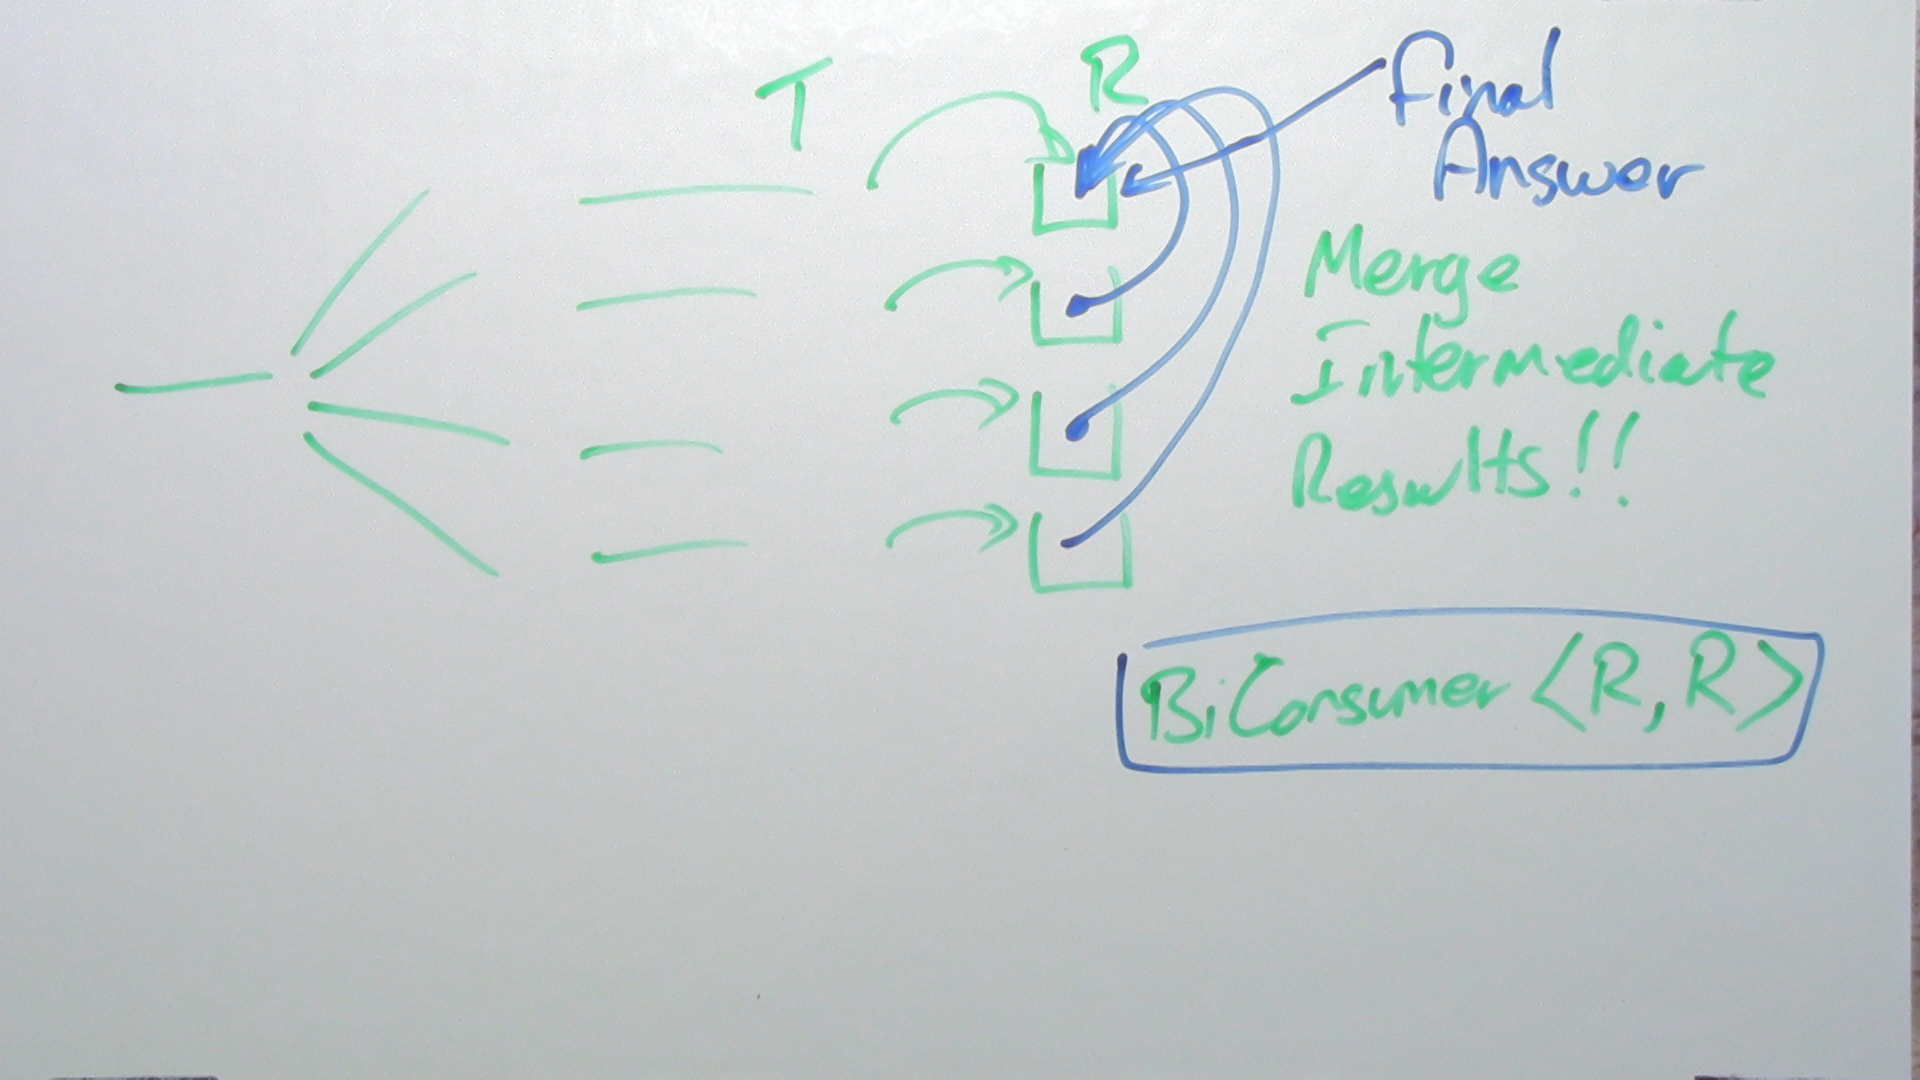 T
R
Final
Answer
Merge
Intermediate
Results!!
BiConsumer <R, R>